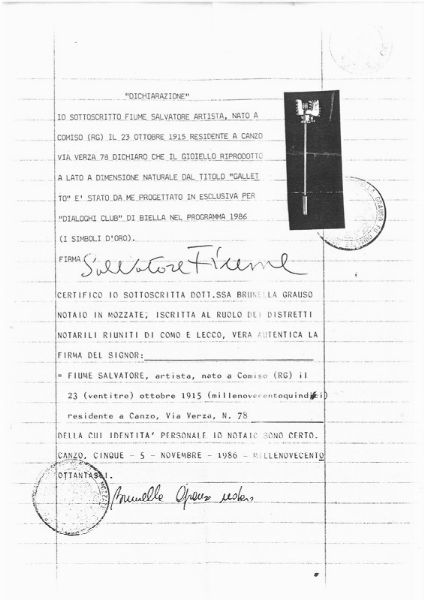 "DICHIARAZIONE"
IO SOTTOSCRITTO FIUME SALVATORE ARTISTA, NATO A
COMISO (RG) IL 23 OTTOBRE 1915 RESIDENTE A CANZO
VIA VERZA 78 DICHIARO CHE IL GIOIELLO RIPRODOTTO
A LATO A DIMENSIONE NATURALE DAL TITOLO "GALLET
TO" E' STATO DA ME PROGETTATO IN ESCLUSIVA PER
"DIALOGHI CLUB" DI BIELLA NEL PROGRAMMA 1986
(I SIMBOLI D'ORO).
FIRMA Salvatore Fiume
CERTIFICO IO SOTTOSCRITTA DOTT.SSA BRUNELLA GRAUSO
NOTAIO IN MOZZATE, ISCRITTA AL RUOLO DEI DISTRETTI
NOTARILI RIUNITI DI COMO E LECCO, VERA AUTENTICA LA
FIRMA DEL SIGNOR:
= FIUME SALVATORE, artista, nato a Comiso (RG) il
23 (ventitre) ottobre 1915 (millenovecentoquindici)
residente a Canzo, Via Verza, N. 78
DELLA CUI IDENTITA' PERSONALE IO NOTAIO SONO CERTO.
CANZO, CINQUE - 5 - NOVEMBRE - 1986 - MILLENOVECENTO
OTTANTASEI.
Brunella Grauso notaio